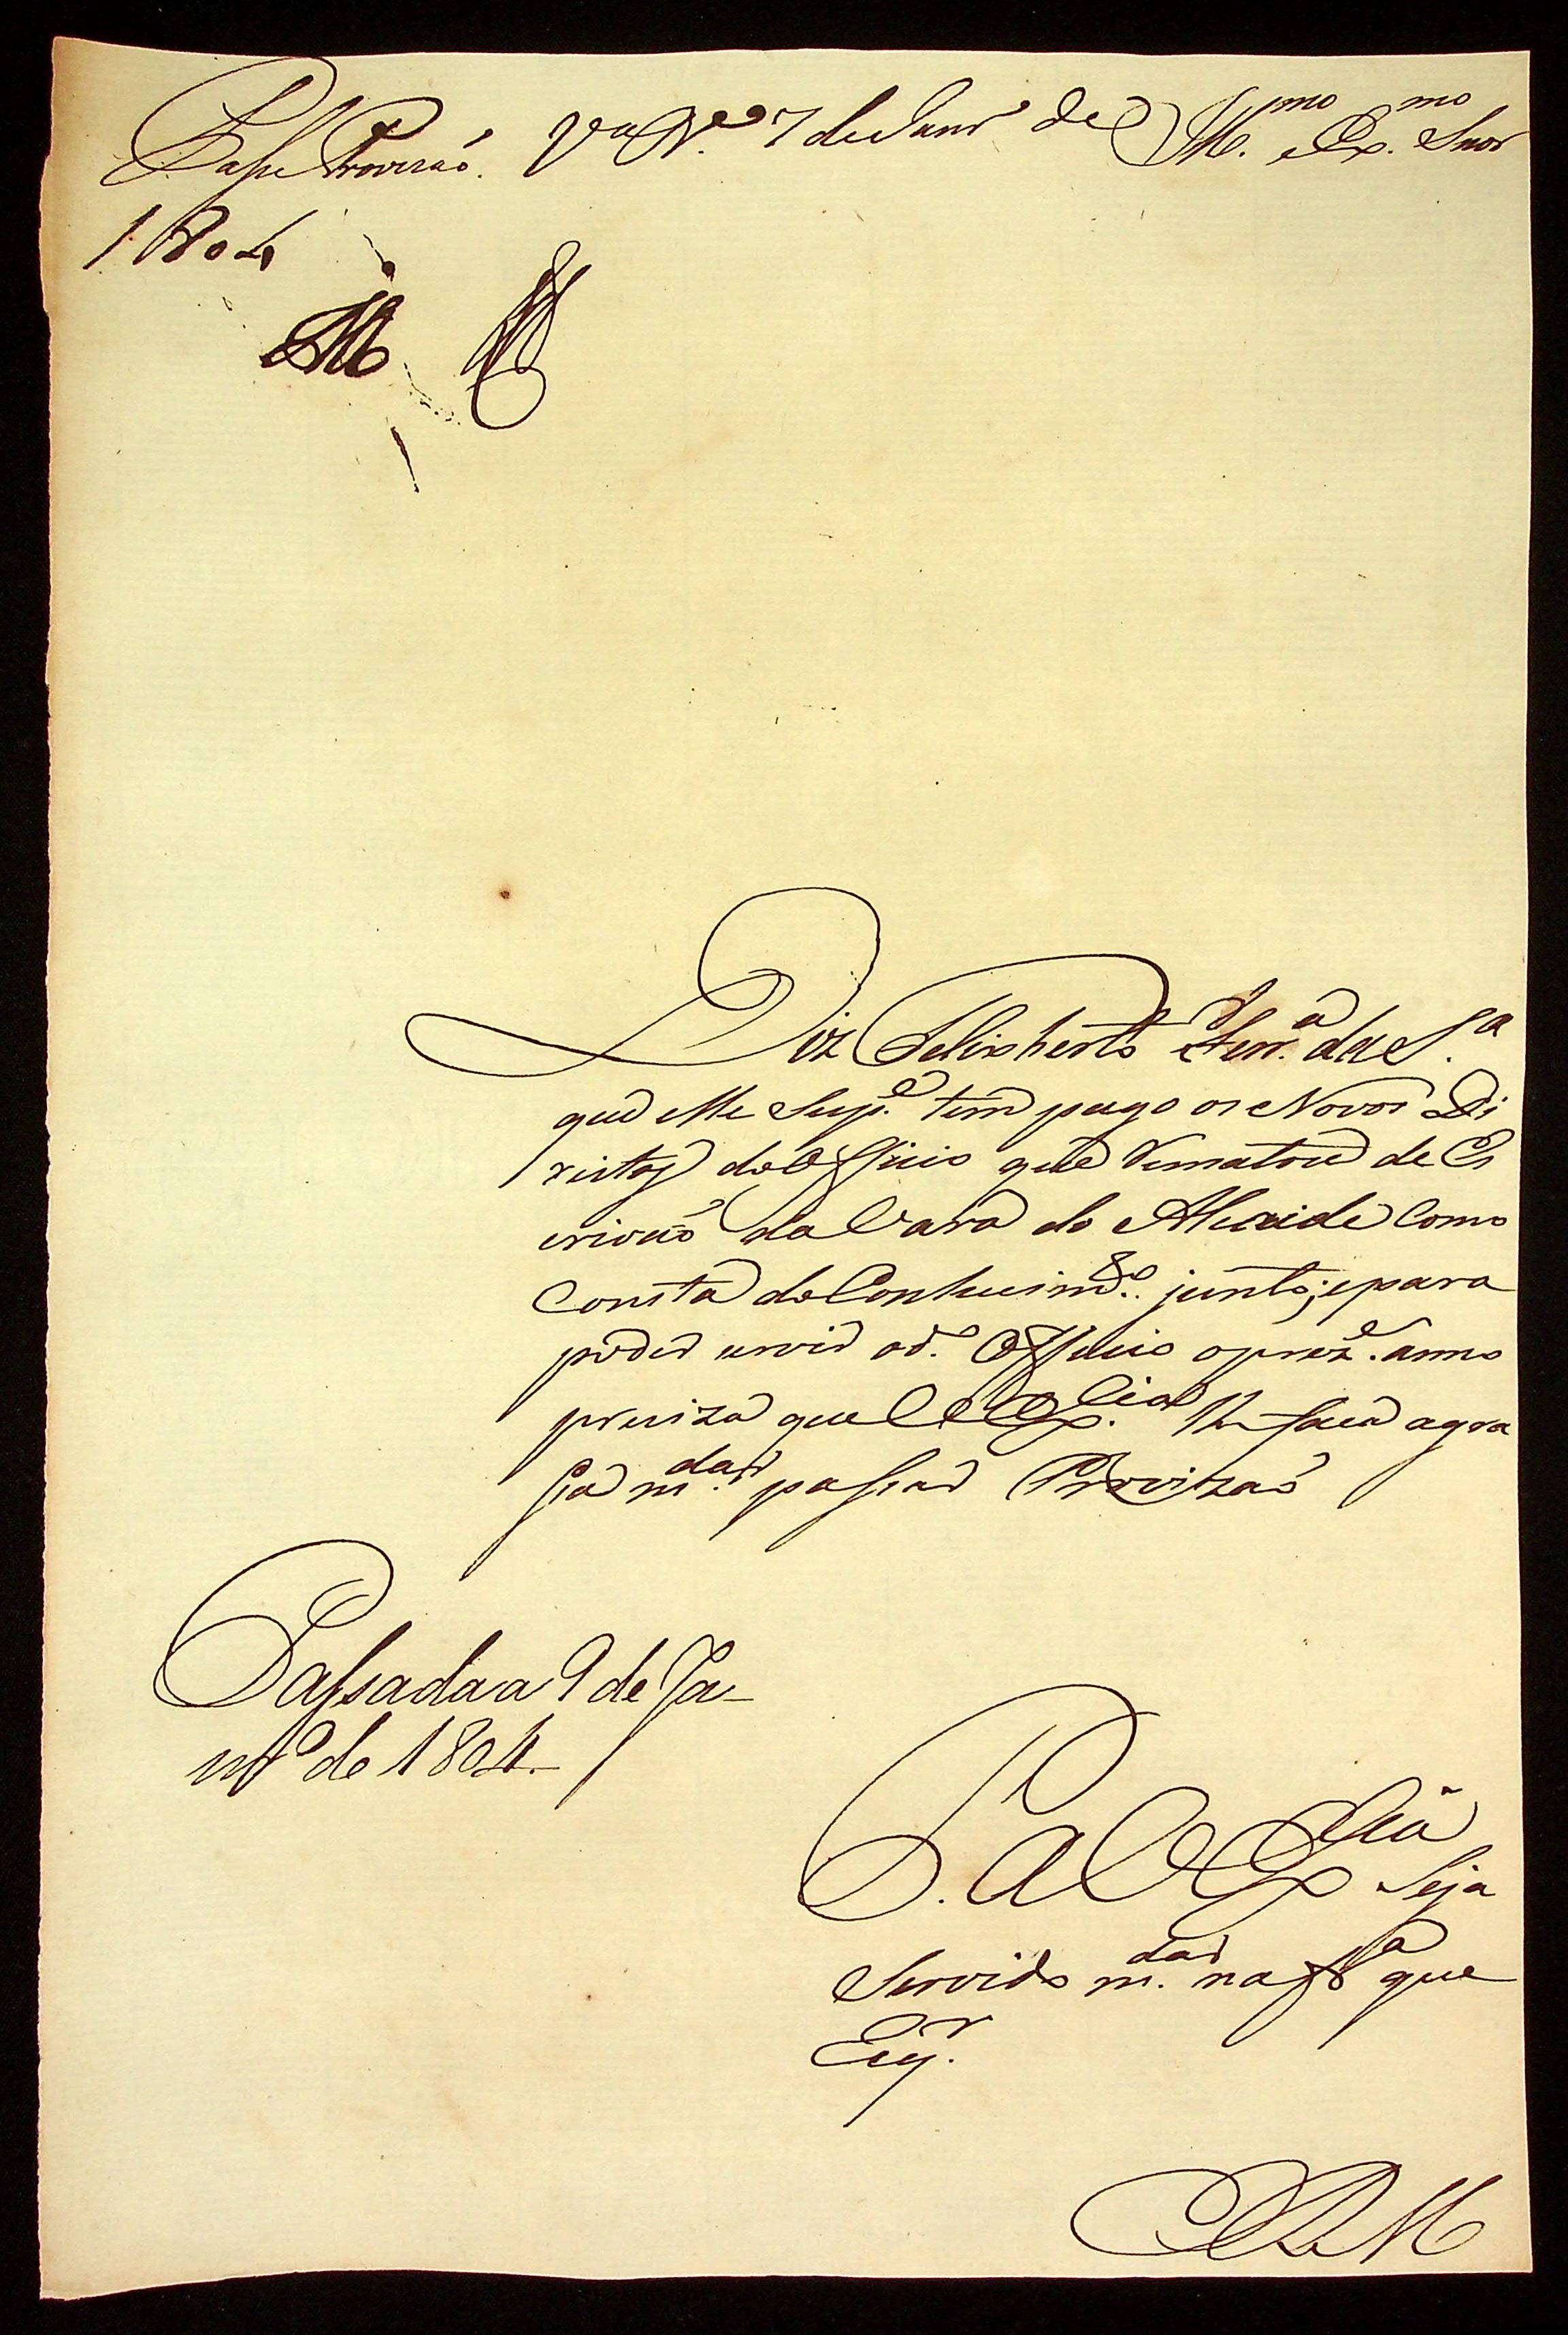 Passe Provizaó. Va Rca 7 de Janrº de
1804
Illmo e Exmo Snor
Diz Felisberto Ferrª da Sª
que elle Supe tem pago os Novos Di
reitos do Officio que Rematou de Es
crivaó da Vara do Alcaide como
Consta do Conhecimto junto; e para
poder servir o do Officio o preze anno
preciza que VExcia lhe faça a gra
ça mdar passar Provizaó
Passada a 9 de Ja
nrº de 1804.
P. a VExcia Seja
Servido mdar na fra que
Seq.
ERM